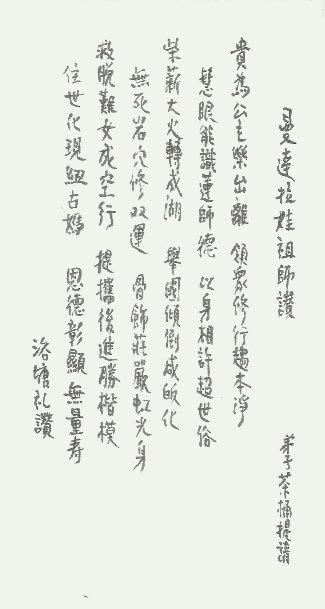 曼達拉娃祖師讚
弟子茶桶提請
貴為公主樂出離 領眾修行趨本淨
慧眼能識蓮師德 以身相許超世俗
柴薪大火轉成湖 舉國傾倒咸皈化
無死岩穴修双運 骨飾莊嚴虹光身
救脫難女成空行 提攜後進勝楷模
住世化現紐古媽 恩德彰顯無量寿
浴塘礼讚